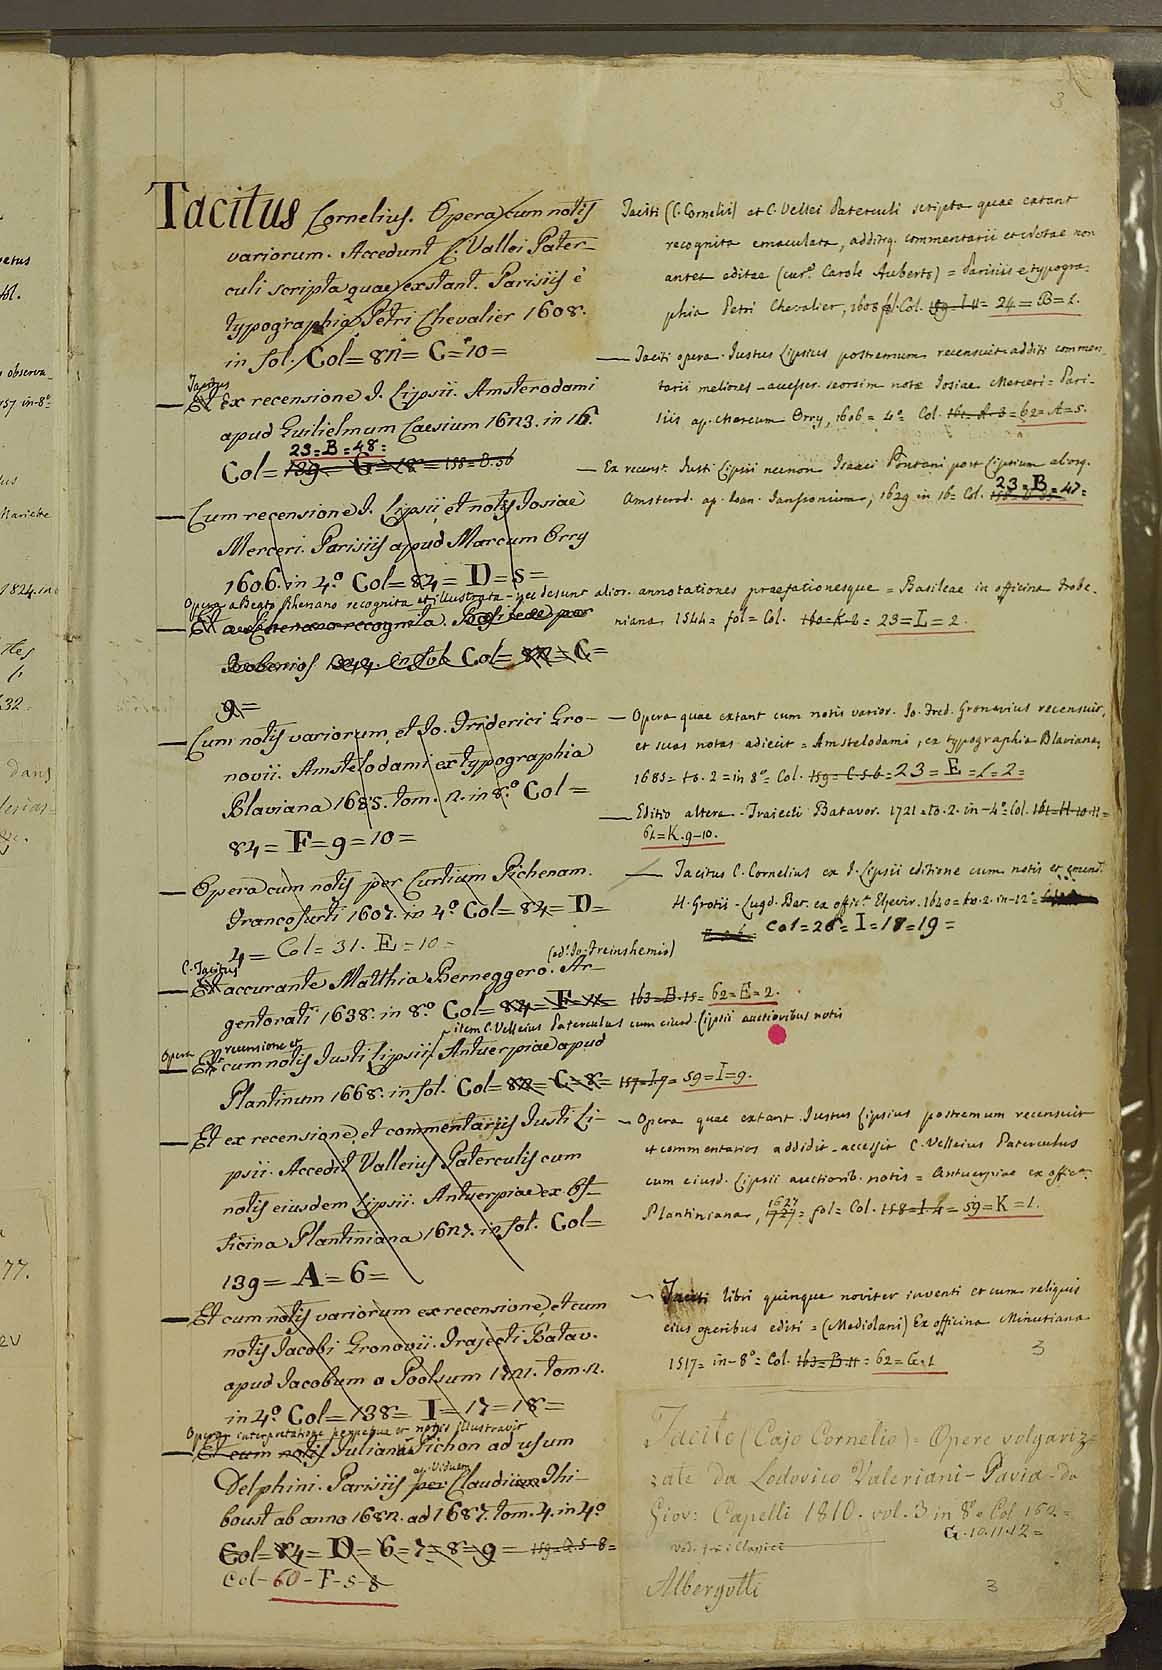 3
Tacitus Cornelius. Opera cum notis
variorum. Accedunt C. Vallei Pater-
culi scripta quae exstant. Parisiis è
typographia Petri Chevalier 1608.
in fol. Col= 82= C= 10=
Tacitus
— Et Ex recensione J. Lipsii. Amsterodami
apud Guilielmum Caesium 1623. in 16.
23=B=48=
Col= 139= G=18= 158=B.56
— Cum recensione J. Lipsii, et notis Josiae
Merceri. Parisiis apud Marcum Orry
1606. in 4º Col= 84= D=5=
Opera a Beato Rhenano recognita et illustrata - nec desunt alior. annotationes praefationesque = Basileae in officina Frobe-
— Et a Rhenano recognita. Basileae per
Frobenios 1544. in fol. Col= 82= C=
9=
— Cum notis variorum, et Jo. Friderici Gro-
novii. Amstelodami ex typographia
Blaviana 1685. tom. 2. in 8.º Col=
84= F=9=10=
— Opera cum notis per Curtium Pichenam.
Francofurti 1607. in 4º Col= 84= D=
4= Col= 31. E=10=
C. Tacitus
(ed. Jo. Freinshemio)
— Et accurante Matthia Berneggero. Ar-
gentorati 1638. in 8º Col= 84= F=11= 163=B.15= 62=E=2.
item C. Velleius Paterculus cum eiusd. Lipsii auctioribus notis
Opera recensione et
— Et cum notis Justi Lipsii Antuerpiae apud
Plantinum 1668. in fol. Col= 82= C=8= 157=I.7= 59=I=9.
— Et ex recensione, et commentariis Justi Li-
psii. Accedit Valleius Paterculis cum
notis eiusdem Lipsii. Antuerpiae ex Of-
ficina Plantiniana 1627. in fol. Col=
139= A=6=
— Et cum notis variorum ex recensione, et cum
notis Jacobi Gronovii. Trajecti Batav.
apud Jacobum a Poolsum 1721. tom. 2.
in 4º Col= 138= I=17=18=
Opera interpretatione perpetua et notis illustravit
— Et cum notis Juliani Pichon ad usum
ap. Viduam
Delphini. Parisiis per Claudium Thi-
boust ab anno 1682. ad 1687. tom. 4. in 4º
Col= 84= D=6=7=8=9= 159=G.5-8=
Col- 60-F-5-8
Taciti (C. Cornelii) et C. Vellei Paterculi scripta quae extant
recognita emaculata, additiq. commentarii et notae non
antea editae (cur.e Carolo Auberto) = Parisiis e typogra-
phia Petri Chevalier, 1608 fol. Col. 159. I 11= 24=B=1.
— Taciti opera. Justus Lipsius postremum recensuit additi commen-
tarii meliores - accesser. seorsim notae Josiae Merceri = Pari-
siis ap. Marcum Orry, 1606= 4º= Col. 161=A.3= 62=A=5.
— Ex recens.e Justi Lipsii necnon Isaaci Pontani post Lipsium aliorq.
Amsterod. ap. Joan. Janssonium, 1629 in 16= Col. 23=B=47=
niana 1544= fol= Col. 160=K.2= 23=L=2.
— Opera quae extant cum notis varior. Jo. Fred. Gronovius recensuit,
et suas notas adiecit = Amstelodami, ex typographia Blaviana,
1685= to. 2= in 8º= Col. 159= C.5.6= 23=E=1=2=
— Editio altera. Traiecti Batavor. 1721= to. 2. in-4º= Col. 161=H.10.11=
62=K.9-10.
— Tacitus C. Cornelius ex J. Lipsii editione cum notis et emend.
H. Grotii - Lugd. Bat. ex offic.a Elzevir. 1640= to. 2. in-12º=
Col= 26= I=18=19=
— Opera quae extant. Justus Lipsius postremum recensuit
et commentarios addidit - accessit C. Velleius Paterculus
cum eiusd. Lipsii auctiorib. notis = Antuerpiae ex offic.a
Plantiniana, 1627 1727= fol= Col. 158=I.4= 59=K=1.
— Taciti libri quinque noviter inventi et cum reliquis
eius operibus editi = (Mediolani) Ex officina Minutiana
1517= in-8º= Col. 163=B.11= 62=G.1
3
Tacito (Cajo Cornelio) = Opere volgariz-
zate da Lodovico Valeriani - Pavia - da
Giov: Capelli 1810. vol. 3 in 8º Col 152=
G. 10.11.12=
ved. fra i Classici
Albergotti
3